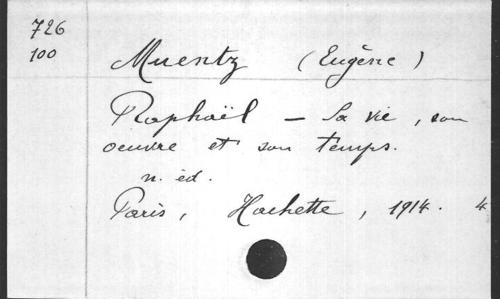 726
100
Muentz (Eugène)
Raphaël — Sa vie, son
oeuvre et son temps.
n. éd.
Paris, Hachette, 1914. 4